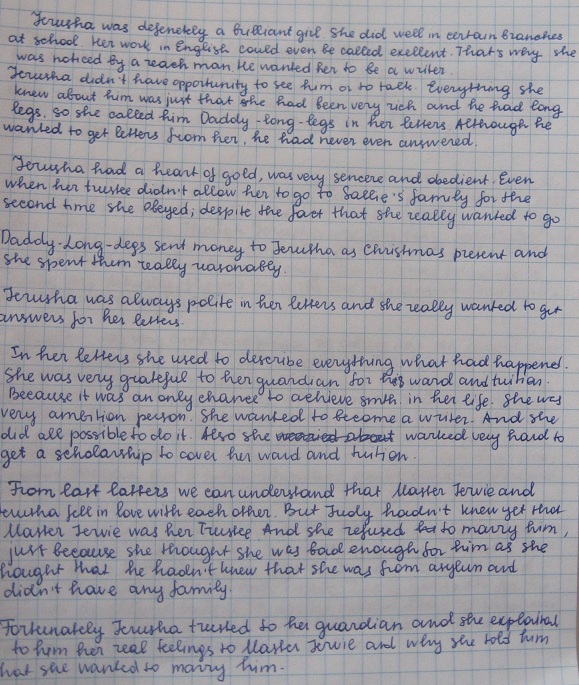 Jerusha was defenetely a brilliant girl. She did well in certain branches
at school. Her work in English could even be called exellent. That's why she
was noticed by a reach man. He wanted her to be a writer.
Jerusha didn't have opportunity to see him or to talk. Everything she
knew about him was just that she had been very rich and he had long
legs, so she called him Daddy-long-legs in her letters. Although he
wanted to get letters from her, he had never even answered.
Jerusha had a heart of gold, was very sencere and obedient. Even
when her trustee didn't allow her to go to Sallie's family for the
second time she obeyed, despite the fact that she really wanted to go
Daddy-Long-Legs sent money to Jerusha as Christmas present and
she spent them really reasonably.
Jerusha was always polite in her letters and she really wanted to get
answers for her letters.
In her letters she used to describe everything what had happened.
She was very grateful to her guardian for his ward and tuition.
Because it was an only chance to achieve smth. in her life. She was
very ambition person. She wanted to become a writer. And she
did all possible to do it. Also she worried about warked very hard to
get a scholarship to cover her ward and tuition.
From last latters we can understand that Master Jerwie and
erusha fell in love with each other. But Judy hadn't knew yet that
Master Jerwie was her Trustee. And she refused to marry him,
just because she thought she was bad enough for him as she
hought that he hadn't knew that she was from asylum and
didn't have any family.
Fortunately Jerusha trusted to her guardian and she explained
to him her real feelings to Master Jerwie and why she told him
hat she wanted to marry him.